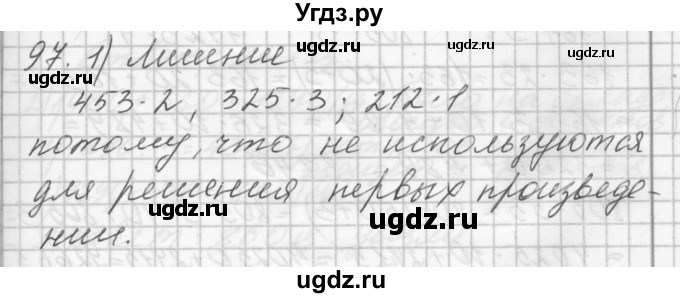 Угдз.ру
97. 1) Лишние
453·2, 325·3; 212·1
потому, что не используются
для решения первых произведе-
нии.
ugdz.ru
ugdz.ru
ugdz.ru
ugdz.ru
ugdz.ru
ugdz.ru
ugdz.ru
ugdz.ru
ugdz.ru
ugdz.ru